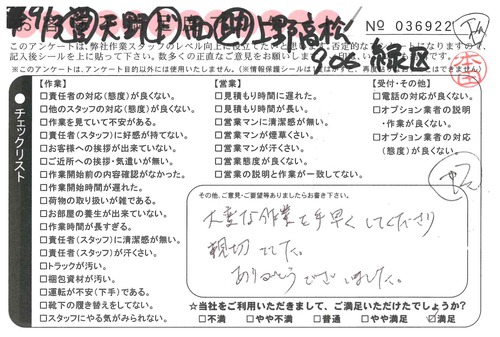 天野 南 上野 高松
№ 036922
緑区
このアンケートは、弊社作業スタッフのレベル向上に役立てたいと思います。否定的な
記入後シールを上に貼って下さい。数多くの正直なご意見をお願いします。
※このアンケートは、アンケート目的以外には使用いたしません。
チェックリスト
【作業】
□責任者の対応(態度)が良くない。
□他のスタッフの対応(態度)が良くない。
□作業を見ていて不安がある。
□責任者(スタッフ)に好感が持てない。
□お客様への挨拶が出来ていない。
□ご近所への挨拶・気遣いが無い。
□作業開始前の内容確認がなかった。
□作業開始時間が遅れた。
□荷物の取り扱いが雑である。
□お部屋の養生が出来ていない。
□作業時間が長すぎる。
□責任者(スタッフ)に清潔感が無い。
□責任者(スタッフ)が汗くさい。
□トラックが汚い。
□梱包資材が汚い。
□運転が不安(下手)である。
□靴下の履き替えをしてない。
□スタッフにやる気がみられない。
【営業】
□見積もり時間に遅れた。
□見積もり時間が長い。
□営業マンに清潔感が無い。
□営業マンが煙草くさい。
□営業マンが汗くさい。
□営業態度が良くない。
□営業の説明と作業が一致してない。
【受付・その他】
□電話の対応が良くない。
□オプション業者の説明
・作業が良くない。
□オプション業者の対応
(態度)が良くない。
その他、ご意見・ご要望等ありましたらお書き下さい。
大変な作業を手早くしてくださり
親切でした。
ありがとうございました。
☆当社をご利用いただきまして、ご満足いただけたでしょうか?
□不満 □やや不満 □普通 □やや満足 ☑満足